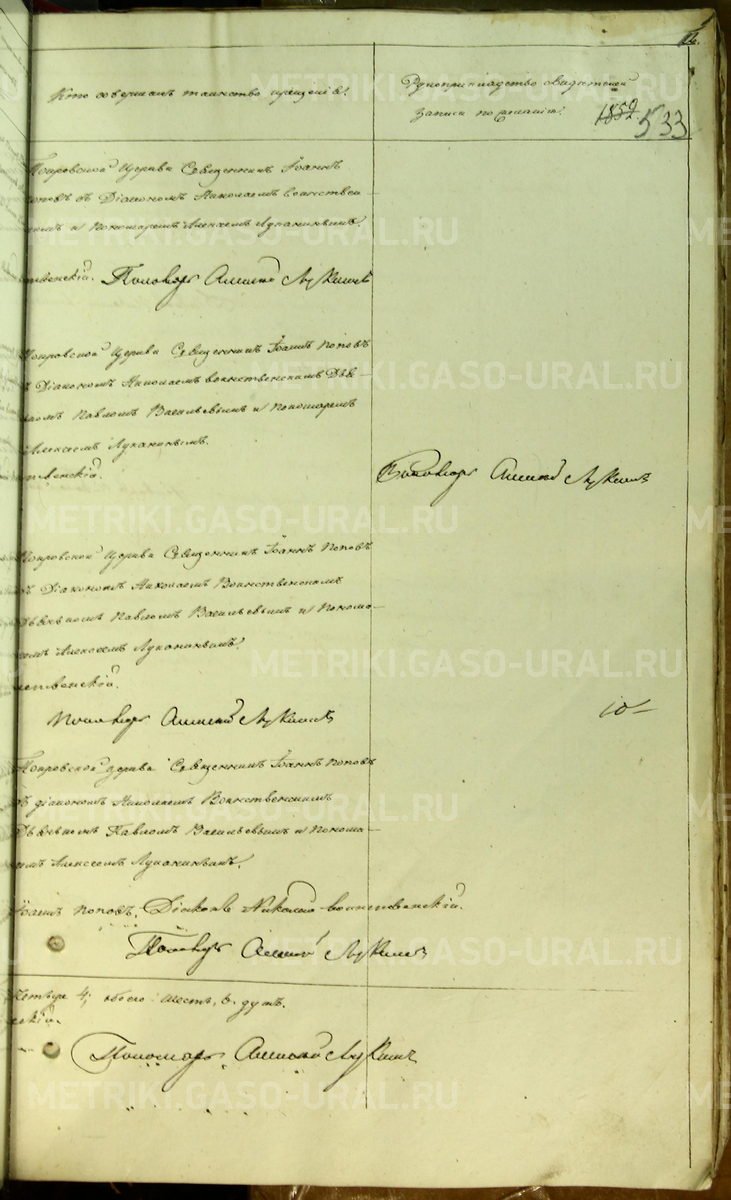 12.
Кто совершалъ таинство крещенія?
Рукоприкладство свидѣтелей
записи по желанію.
1852. 533
Покровской Церкви Священникъ Іоаннъ
Поповъ съ Діакономъ Николаемъ Воинствен-
скимъ и Пономаремъ Алексеемъ Лукинымъ.
ственскій. Пономарь Алексей Лукинъ
Покровской Церкви Священникъ Іоаннъ Поповъ
съ Діакономъ Николаемъ Воинственскимъ Дья-
Павломъ Васильевымъ и Пономаремъ
Алексеемъ
ственскій.
Пономарь Алексей Лукинъ
Покровской Церкви Священникъ Іоаннъ Поповъ
съ Діакономъ Николаемъ Воинственскимъ
Павломъ Васильевымъ и Понома-
Алексеемъ
ственскій.
Пономарь Алексей Лукинъ
10
Покровской Церкви Священникъ Іоаннъ Поповъ
съ Діакономъ Николаемъ Воинственскимъ
Павломъ Васильевымъ и Понома-
Алексеемъ
Іоаннъ Поповъ. Діаконъ Николай Воинственскій.
Пономарь Алексей Лукинъ
4; обоего шесть, 6. душъ.
скій.
Пономарь Алексей Лукинъ
METRIKI.GASO-URAL.RU